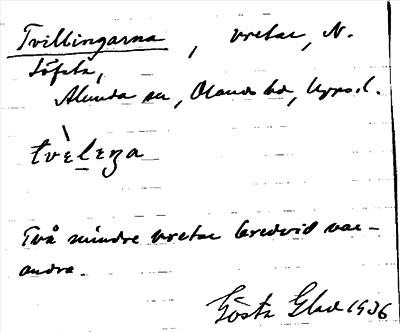 Tvillingarna, vretar, N.
Löfsta,
Alunda sn, Olands hd, Upps. l.
tvèleŋa
Två mindre vretar bredvid var-
andra.
Gösta Glad 1936